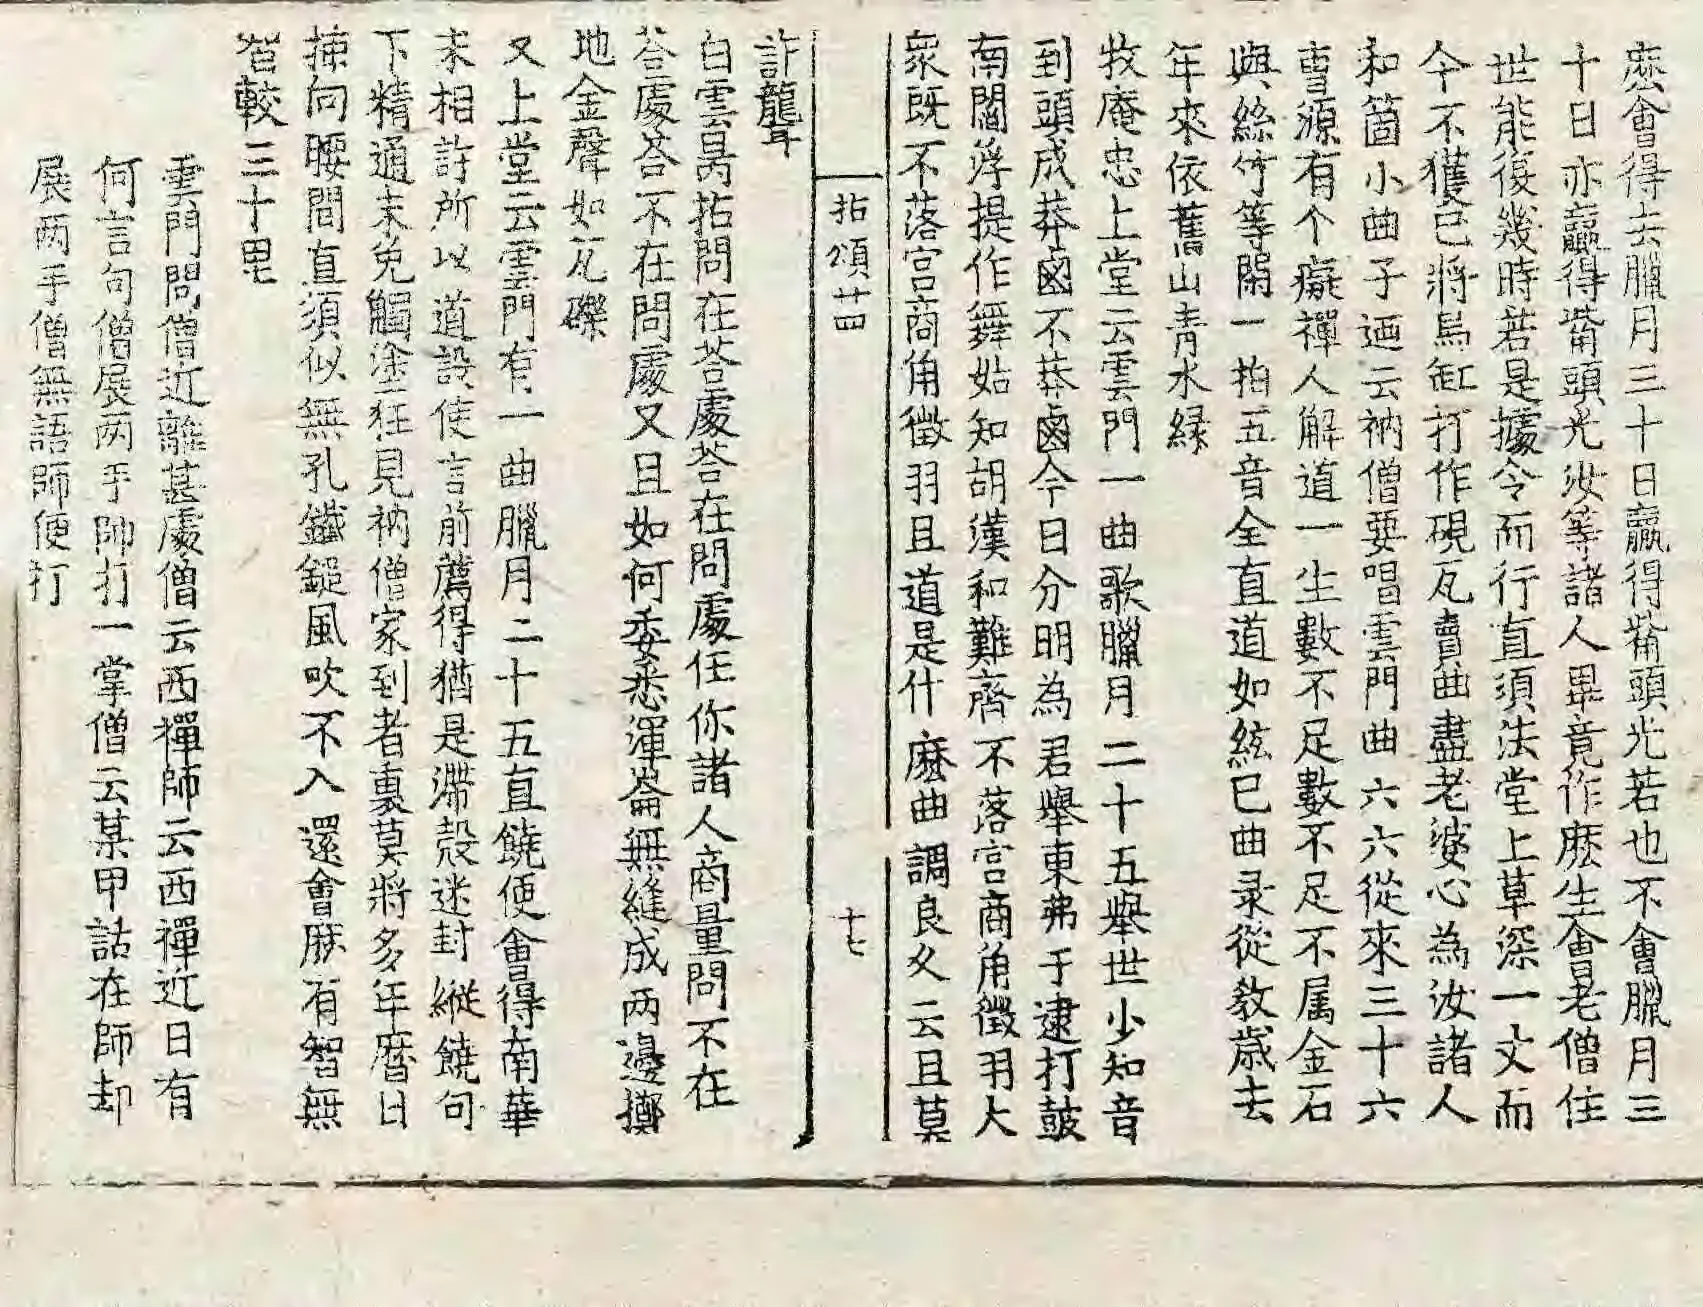 麽會得去臘月三十日贏得觜頭光若也不會臘月三
十日亦贏得觜頭光汝等諸人畢竟作麽生會老僧住
世能復幾時若是據令而行直須法堂上草深一丈而
今不獲已將烏缸打作硯瓦賣曲盡老婆心為汝諸人
和箇小曲子迺云衲僧要唱雲門曲六六從來三十六
曹源有个癡禪人解道一生數不足數不足不属金石
與絲竹等閑一拍五音全直道如絃已曲录從教歳去
年來依舊山青水緑
牧庵忠上堂云雲門一曲歌臘月二十五舉世少知音
到頭成莽鹵不莽鹵今日分明為君舉東弗于逮打皷
南閻浮提作舞始知胡漢和難齊不落宫商角徵羽大
衆既不落宫商角徵羽且道是什麽曲調良久云且莫
拈頌廿四
十七
訴龍聾
白雲昺拈問在荅處荅在問處任你諸人商量問不在
荅處荅不在問處又且如何委悉渾崙無縫成两邊擲
地金聲如瓦礫
又上堂云雲門有一曲臘月二十五直饒便會得南華
未相許所以道設使言前薦得猶是滯殻迷封縱饒句
下精通未免觸塗狂見衲僧家到者裏莫將多年曆日
揀向腰間直須似無孔鐵鎚風吹不入還會麽有智無
智較三十里
雲門問僧近離甚處僧云西禪師云西禪近日有
何言句僧展两手師打一掌僧云某甲話在師却
展两手僧無語師便打